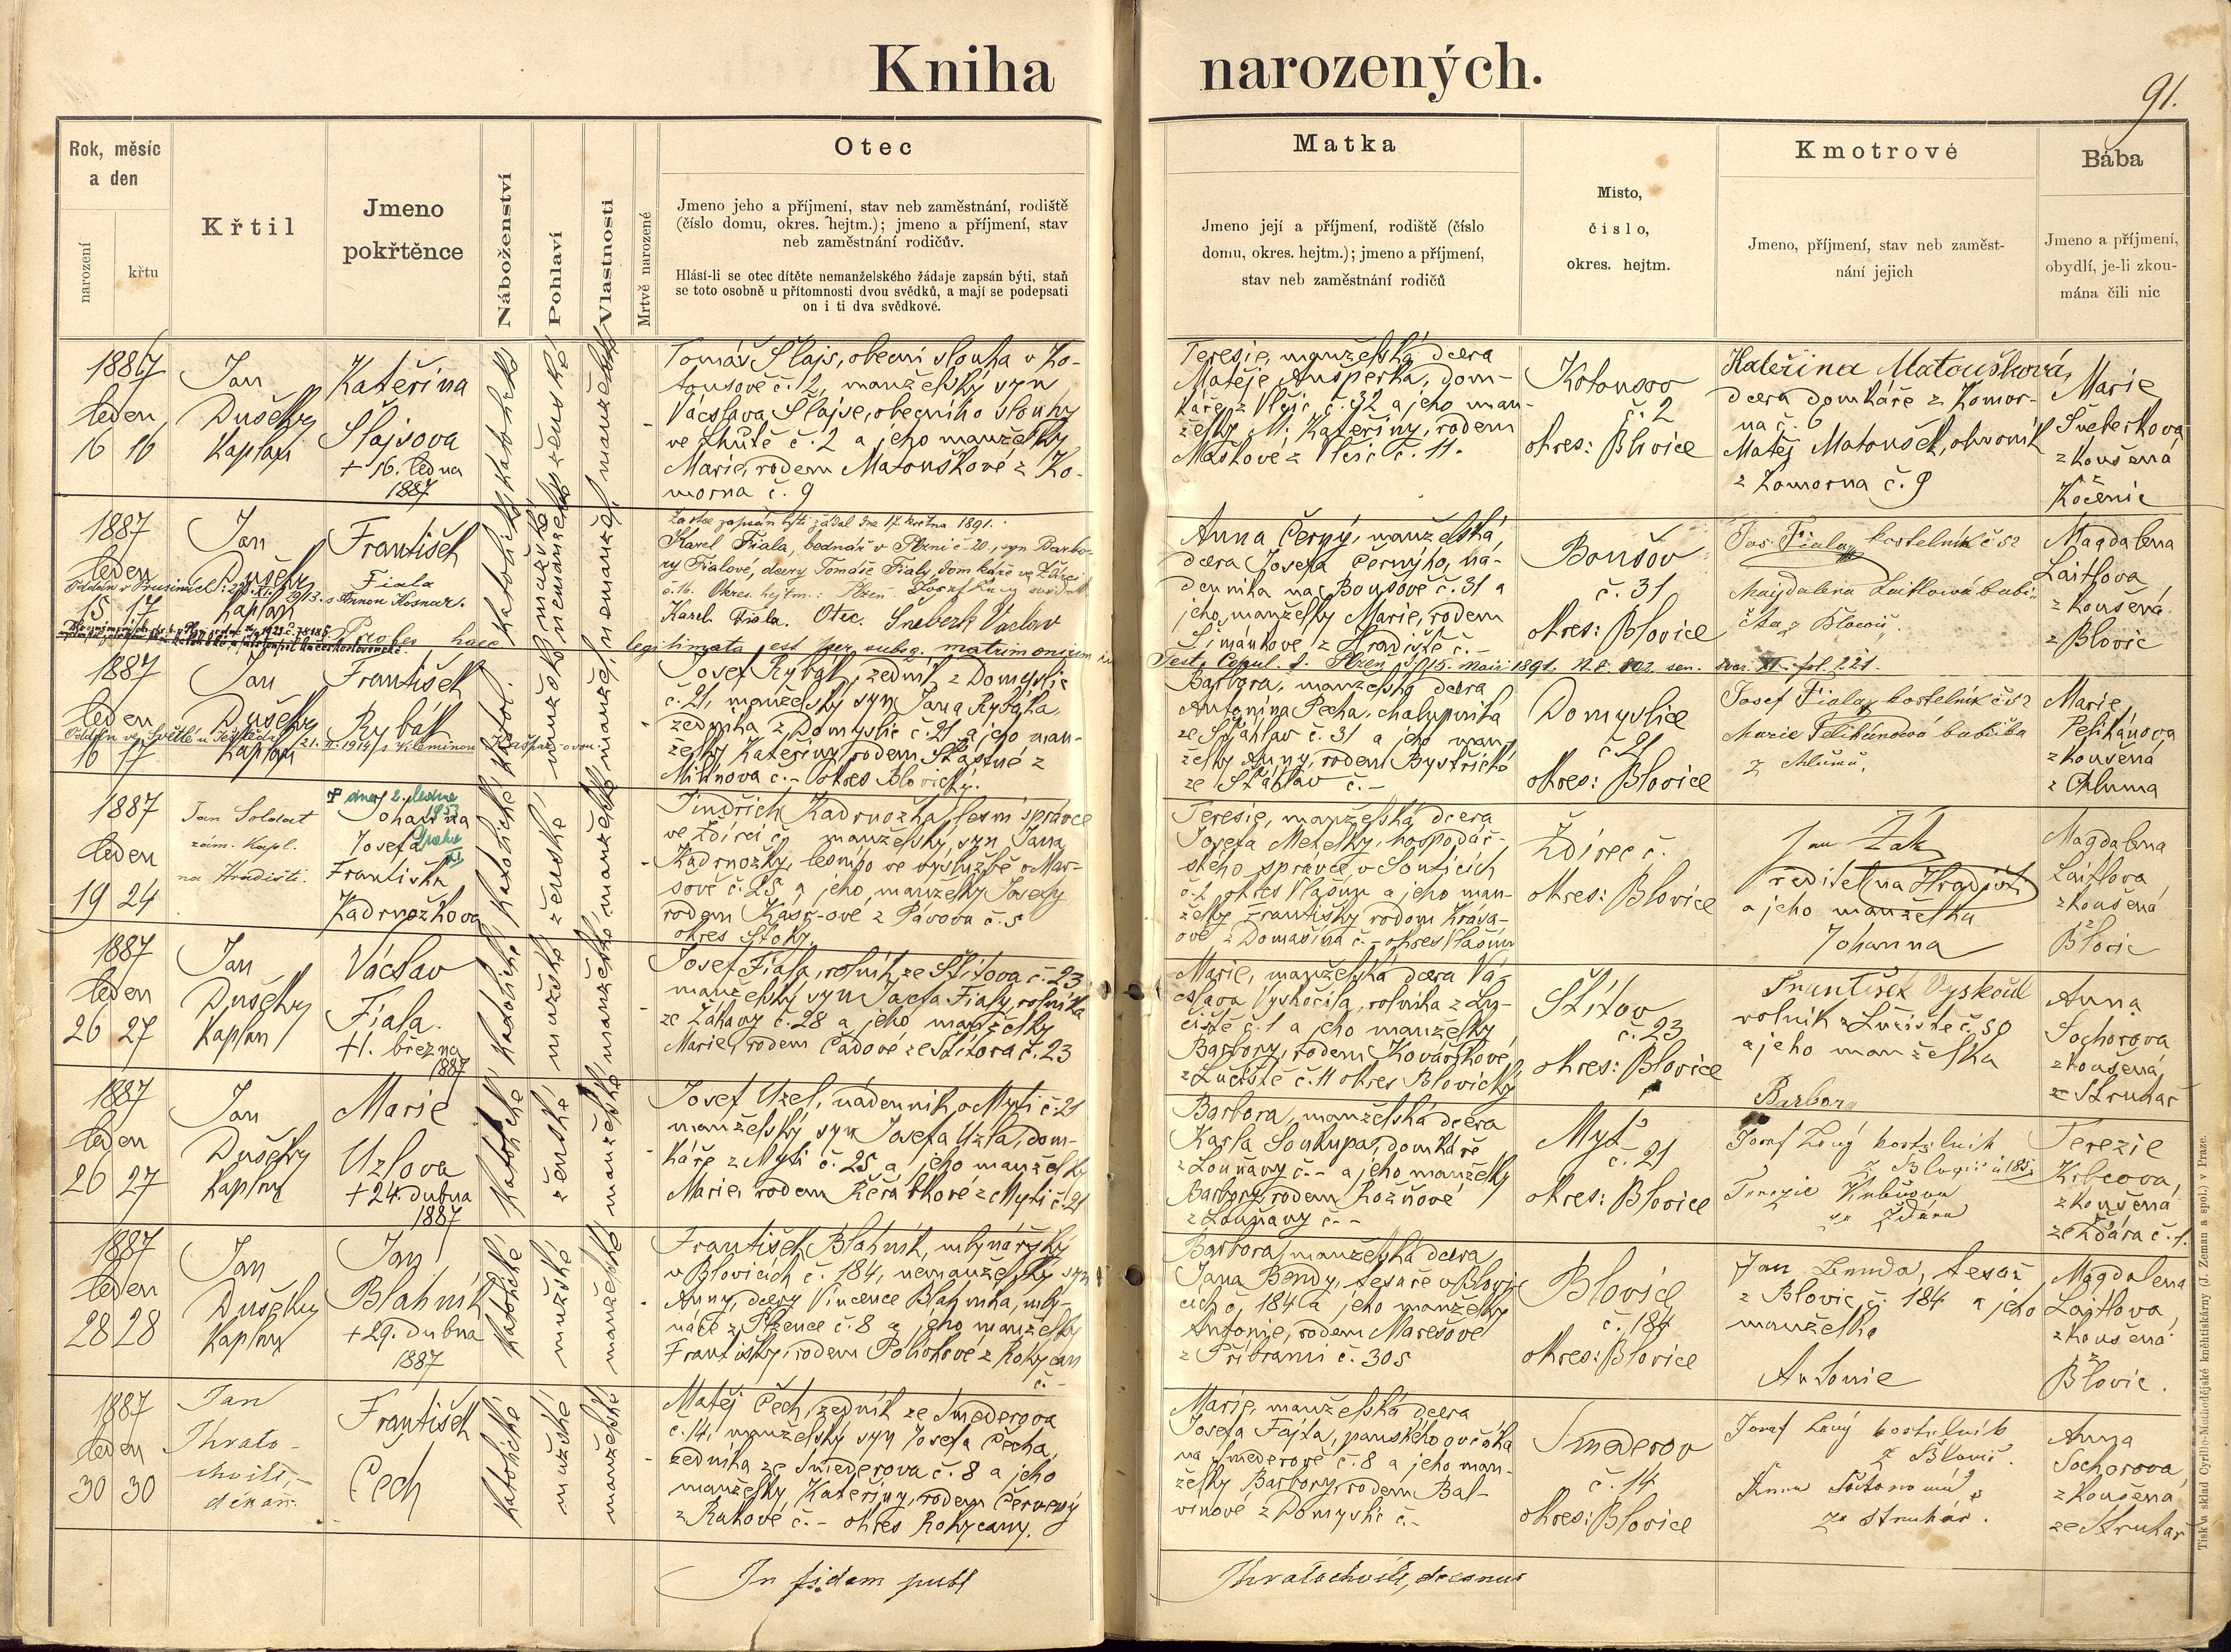 Kniha narozených.
91.
Rok, měsíc
a den
narození
křtu
Křtil
Jmeno
pokřtěnce
Náboženství
Pohlaví
Vlastnosti
Mrtvě narozené
Otec
Jmeno jeho a příjmení, stav neb zaměstnání, rodiště
(číslo domu, okres. hejtm.); jmeno a příjmení, stav
neb zaměstnání rodičův.
Hlásí-li se otec dítěte nemanželského žádaje zapsán býti, staň
se toto osobně u přítomnosti dvou svědků, a mají se podepsati
on i ti dva svědkové.
Matka
Jmeno její a příjmení, rodiště (číslo
domu, okres. hejtm.); jmeno a příjmení,
stav neb zaměstnání rodičů
Místo,
číslo,
okres. hejtm.
Kmotrové
Jmeno, příjmení, stav neb zaměst-
nání jejich
Bába
Jmeno a příjmení,
obydlí, je-li zkou-
mána čili nic
1887
leden
16 16
Jan
Dušeky
Kaplan
Kateřina
Šlajsova
+ 16. ledna
1887
katolické
ženské
manželské
Tomáš Šlajs, obecní slouha v Ko-
tousově č. 12, manželský syn
Václava Šlajse, obecního slouhy
ve Lhůtě č. 2 a jeho manželky
Marie, rodem Matouškové z Ko-
morna č. 9
Teresie, manželská dcera
Matěje Aušperka, dom-
káře z Vlčic č. 32 a jeho man-
želky M. Kateřiny, rodem
Maškové z Vlčic č. 11.
Kotousov
č. 2
okres: Blovice
Kateřina Matoušková,
dcera domkáře z Komor-
na č. 6
Matěj Matoušek, obuvník
z Komorna č. 9
Marie
zkoušená
z
Kočenic
1887
leden
15 17
Jan
Dušeky
Kaplan
František
Fiala
Oddán v Prusinách 1913 s Annou Kosnar.
katolické
mužské
nemanžel.
Za otce zapsán býti žádal dne 17. května 1891.
Karel Fiala, bednář v Plzni č. 20, syn Barbo-
ry Fialové, dcery Tomáše Fialy, domkáře ve Ždírci
č. 16. Okres. hejtm.: Plzeň
Karel Fiala. Otec. Václav
Proles haec legitimata est per subsq. matrimonium in
Test. Copul. Plzeň 15. Maii 1891. fol. 221.
Anna Černý, manželská
dcera Josefa Černýho, ná-
denníka na Boušově č. 31 a
jeho manželky Marie, rodem
Šimánkové z Hradiště č. -
Boušov
č. 31
okres: Blovice
Jos. Fiala, kostelník č 52
Majdalena Laitlová babi-
čka z Blovic.
Magdalena
Laitlova
zkoušená
z Blovic
1887
leden
16 17
Jan
Dušeky
Kaplan
František
Rybák
Oddán ve Světlé 21. 1914
katol.
mužské
manžel.
Josef Rybák, zedník z Domyslic
č. 21, manželský syn Jana Rybáka,
zedníka z Domyslic č. 21 a jeho man-
želky Kateřiny, rodem Šťastné z
Mitinova č. - okres Blovický.
Barbora, manželská dcera
Antonína Pecha, chalupníka
ze Šťáhlav č. 31 a jeho man-
želky Anny, rodem Bystřické
ze Šťáhlav č. -
Domyslice
č. 21
okres: Blovice
Josef Fiala, kostelník č 52
Marie Pelikánová babička
z Chlumu.
Marie
Pelikánova
zkoušená
z Chluma
1887
leden
19 24
Jan Soldat
zám. kapl.
na Hradišti.
+ dne 2. ledna
1953
Johanna
Josefa
Františka
Kadrnožkova
katolické
ženské
manželské
Jindřich Kadrnožka, lesní správce
ve Ždírci č. manželský syn Jana
Kadrnožky, lesního ve výslužbě v Mar-
sově č. 25 a jeho manželky Josefy
rodem z Pávova č. 5
okres Štoky.
Teresie, manželská dcera
Josefa hospodář-
ského správce v Souticích
č. 2 okres Vlašim a jeho man-
želky Františky rodem Kráva-
ové z Domašína č. - okres Vlašim
Ždírec č.
okres: Blovice
Jan Žák
ředitel na Hradišti
a jeho manželka
Johanna
Magdalena
Laitlova
zkoušená
z
Blovic
1887
leden
26 27
Jan
Dušeky
Kaplan
Václav
Fiala
+ 1. března
1887
katolické
mužské
manželské
Josef Fiala, rolník ze Štítova č. 23
manželský syn Jakuba Fialy, rolníka
ze Žákavy č. 28 a jeho manželky
Marie, rodem Čadové ze Štítova č. 23
Marie, manželská dcera Vá-
clava Vyskočila, rolníka z Lu-
čiště č. 1 a jeho manželky
Barbory, rodem Kovářikové
z Lučiště č. 11 okres Blovický
Štítov
č. 23
okres: Blovice
František Vyskočil
rolník z Lučiště č. 50
a jeho manželka
Barbora
Anna
Sochorova
zkoušená
ze Struhař
1887
leden
26 27
Jan
Dušeky
Kaplan
Marie
Uzlova
+ 24. dubna
1887
katolické
ženské
manželské
Josef Uzel, nádenník v Myti č. 21
manželský syn Josefa Uzla, dom-
káře z Myti č. 25 a jeho manželky
Marie, rodem Řeřábkové z Myti č. 21
Barbora, manželská dcera
Karla Soukupa, domkáře
z Louňavy č. - a jeho manželky
Barbory, rodem Rožňové
z Louňavy č. -
Myť
č. 21
okres: Blovice
Josef Levý kostelník
z Blovic č 185
Terezie Krbcova
ze Ždáru
Terezie
Krbcova,
zkoušená
ze Ždára č. 1.
1887
leden
28 28
Jan
Dušeky
Kaplan
Jan
Blahník
+ 29. dubna
1887
katolické
mužské
manželské
František Blahník, mlynářský
v Blovicích č. 184, nemanželský syn
Anny, dcery Vincence Blahníka, mly-
náře z Plzence č. 8 a jeho manželky
Františky, rodem z Rokycan
č. -
Barbora, manželská dcera
Jana Bendy, tesaře v Blovi-
cích č. 184 a jeho manželky
Antonie, rodem Marešové
z Příbrami č. 305
Blovice
č. 184
okres: Blovice
Jan Benda, tesař
z Blovic č. 184 a jeho
manželka
Antonie
Magdalena
Laitlova,
zkoušená
z
Blovic.
1887
leden
30 30
Jan
Khrato-
chvíll,
děkan.
František
Čech
katolické
mužské
manželské
Matěj Čech, zedník ze Smederova
č. 14, manželský syn Josefa Čecha,
zedníka ze Smederova č. 8 a jeho
manželky, Kateřiny, rodem Červený
z Rakové č. - okres Rokycany.
Marie, manželská dcera
Josefa Fajta, panského ovčáka
na Smederově č. 8 a jeho man-
želky Barbory, rodem Bal-
vínové z Domyslic č. -
Smederov
č. 14
okres: Blovice
Josef Levý kostelník
z Blovic.
Anna
ze Struhař.
Anna
Sochorova
zkoušená
ze Struhař
In fidem publ
Khratochvíll, decanus
Tisk a sklad Cyrillo-Methodějské kněhtiskárny (J. Zeman a spol.) v Praze.